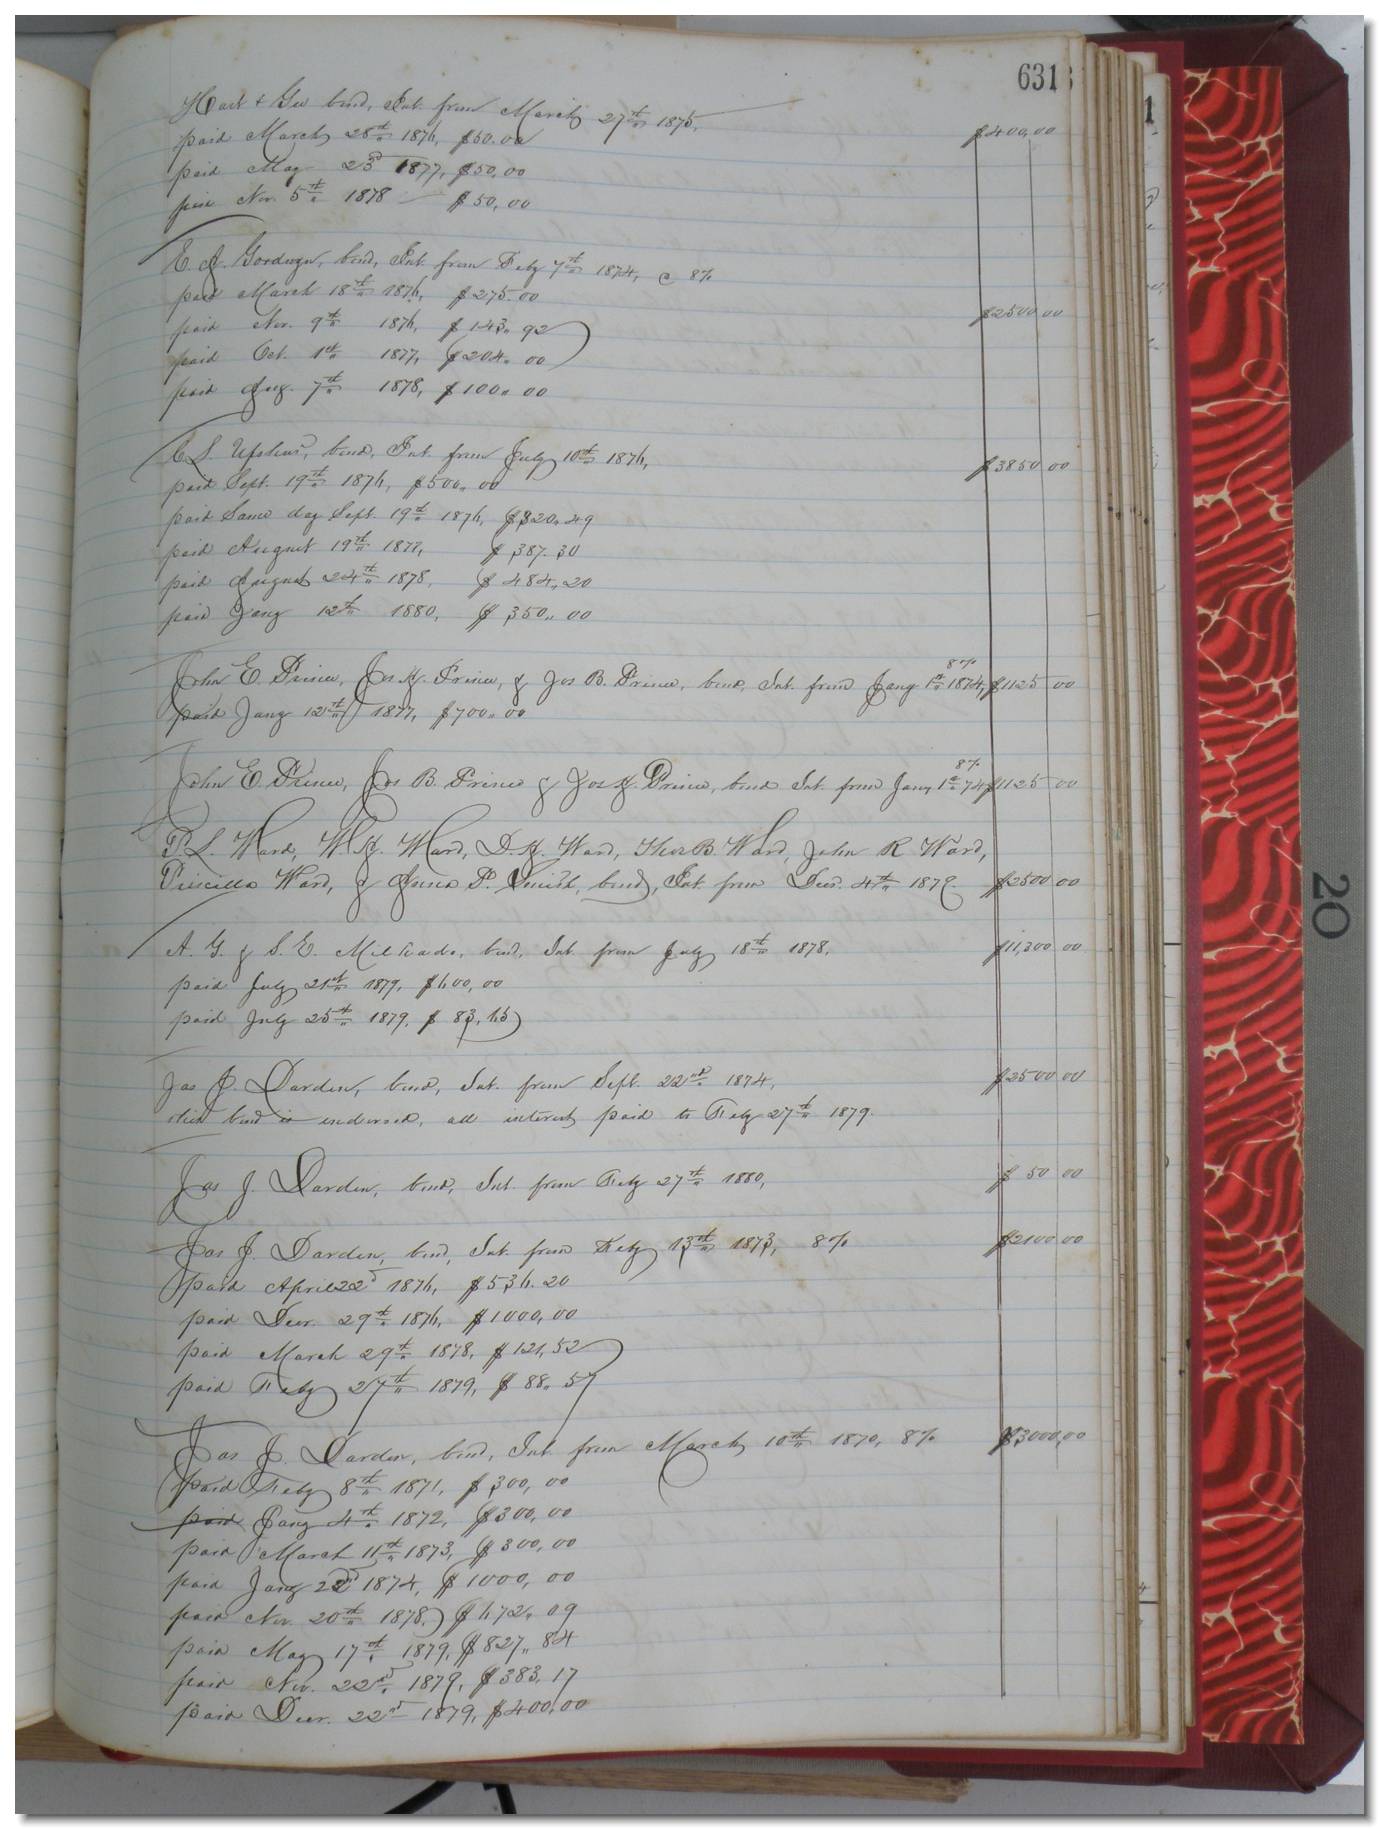 631
Hart & Geo bond, Int. from March 27th 1875, $400,00
paid March 28th 1876, $50.00
paid May 23d 1877, $50,00
paid Nov. 5th 1878 $50,00
E. A. bond, Int from Feby 7th 1874, @ 8% $2500 00
paid March 18th 1876, $275.00
paid Nov. 9th 1876, $143.92
paid Oct. 1st 1877, $204.00
paid Aug. 7th 1878, $100.00
bond, Int. from July 10th 1876, $3850 00
paid Sept. 19th 1876, $500.00
paid Same day Sept. 19th 1876, $320.49
paid August 19th 1877, $387.30
paid August 24th 1878, $484.20
paid Jany 12th 1880, $350.00
John E. Prince, Jos H. Prince, & Jos B. Prince, bond, Int. from Jany 1st 1874, 8% $1125 00
paid Jany 12th 1877, $700.00
John E. Prince, Jos B. Prince & Jos H. Prince, bond Int. from Jany 1st 74, 8% $1125 00
P. L. Ward, W. H. Ward, D. H. Ward, Thos B. Ward, John R Ward,
Priscilla Ward, & Anna P. Smith, bond, Int. from Decr. 4th 1879. $2500 00
A. G. & S. E. bond, Int from July 18th 1878, $11,300 00
paid July 21st 1879, $600,00
paid July 25th 1879, $83,65
Jas J. Darden, bond, Int. from Sept. 22nd 1874, $2500 00
this bond is endorsed, all interest paid to Feby 27th 1879.
Jas J. Darden, bond, Int. from Feby 27th 1880, $50 00
Jas J. Darden, bond, Int. from Feby 13th 1873, 8% $2100 00
paid April 22d 1876, $536.20
paid Decr. 29th 1876, $1000,00
paid March 29th 1878, $121,52
paid Feby 27th 1879, $88.57
Jas J. Darden, bond, Int. from March 10th 1870, 8% $3000,00
paid Feby 8th 1871, $300,00
paid Jany 4th 1872, $300,00
paid March 11th 1873, $300,00
paid Jany 22d 1874, $1000,00
paid Nov. 20th 1878, $672.09
paid May 17th 1879, $827.84
paid Nov. 22nd 1879, $383.17
paid Decr. 22nd 1879, $400,00
20